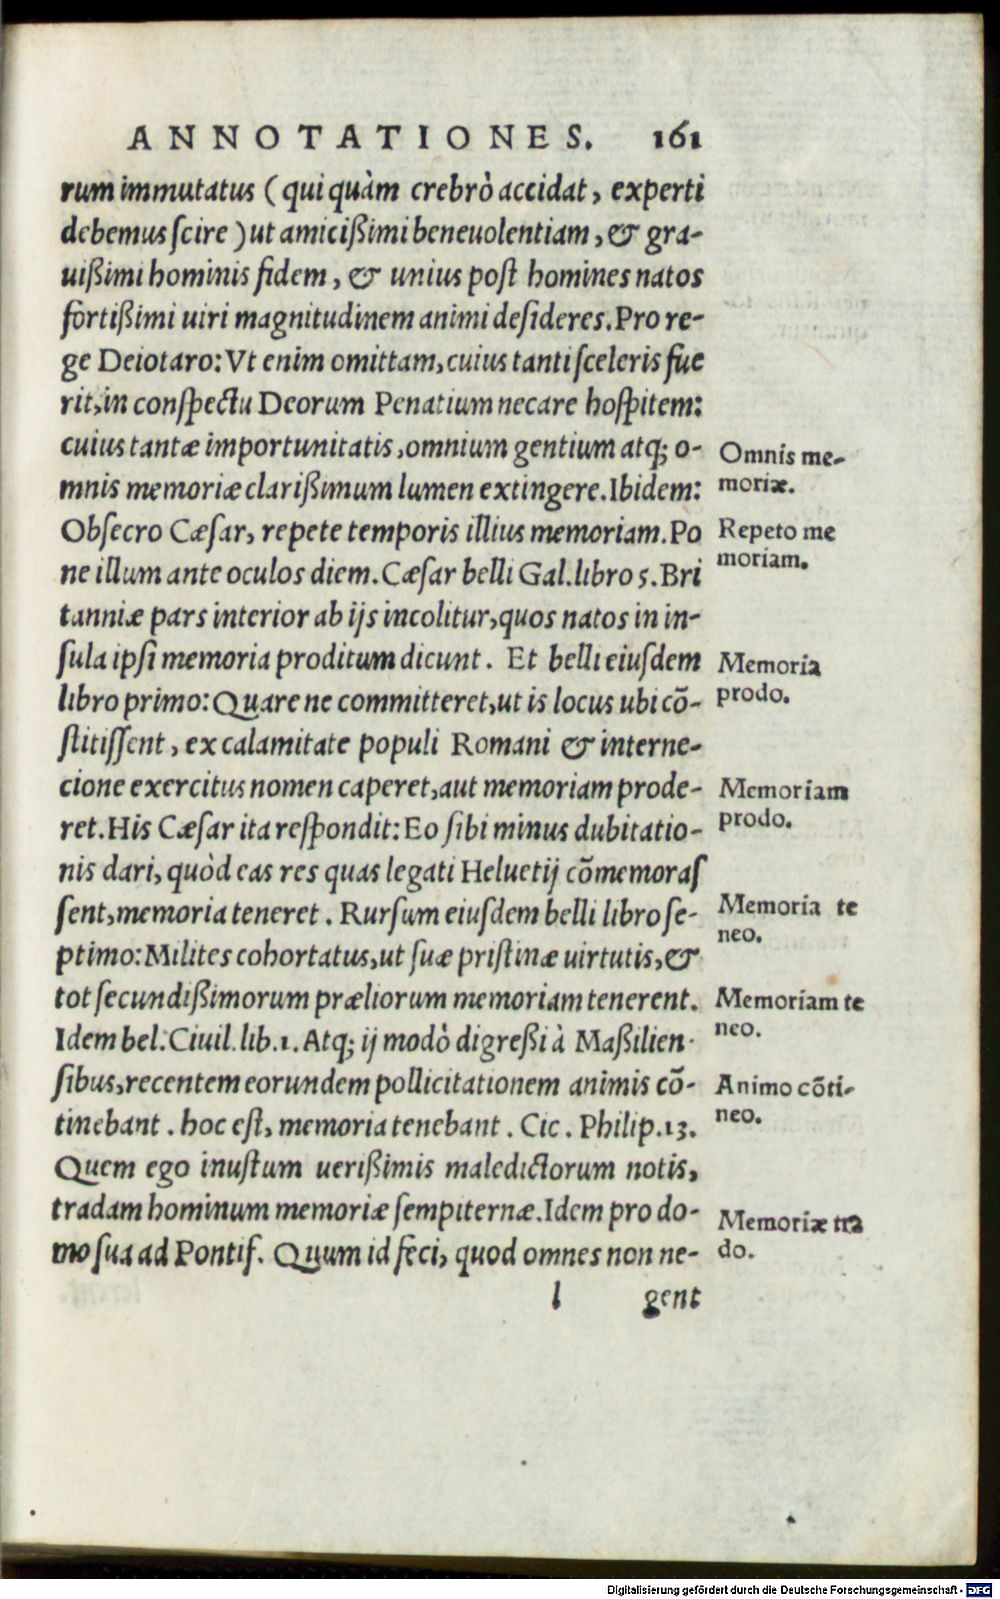 ANNOTATIONES. 161
rum immutatus ( qui quàm crebrò accidat, experti
debemus ſcire ) ut amicißimi beneuolentiam, & gra-
uißimi hominis fidem, & unius poſt homines natos
fortißimi uiri magnitudinem animi deſideres. Pro re-
ge Deiotaro: Vt enim omittam, cuius tanti ſceleris fue
rit, in conſpectu Deorum Penatium necare hoſpitem:
cuius tantæ importunitatis, omnium gentium atq; o-
Omnis me-
mnis memoriæ clarißimum lumen extingere. Ibidem:
moriæ.
Obſecro Cæſar, repete temporis illius memoriam. Po
Repeto me
ne illum ante oculos diem. Cæſar belli Gal. libro 5. Bri
moriam.
tanniæ pars interior ab ijs incolitur, quos natos in in-
ſula ipſi memoria proditum dicunt. Et belli eiuſdem
Memoria
libro primo: Quare ne committeret, ut is locus ubi cō-
prodo.
ſtitiſſent, ex calamitate populi Romani & interne-
cione exercitus nomen caperet, aut memoriam prode-
Memoriam
ret. His Cæſar ita reſpondit: Eo ſibi minus dubitatio-
prodo.
nis dari, quòd eas res quas legati Heluetij cōmemoraſ
ſent, memoria teneret. Rurſum eiuſdem belli libro ſe-
Memoria te
neo.
ptimo: Milites cohortatus, ut ſuæ priſtinæ uirtutis, &
tot ſecundißimorum præliorum memoriam tenerent.
Memoriam te
Idem bel. Ciuil. lib. 1. Atq; ij modò digreßi à Maßilien-
neo.
ſibus, recentem eorundem pollicitationem animis cō-
Animo cōti-
tinebant. hoc eſt, memoria tenebant. Cic. Philip. 13.
neo.
Quem ego inuſtum uerißimis maledictorum notis,
tradam hominum memoriæ ſempiternæ. Idem pro do-
Memoriæ tra
mo ſua ad Pontif. Quum id feci, quod omnes non ne-
do.
l gent
Digitalisierung gefördert durch die Deutsche Forschungsgemeinschaft - DFG